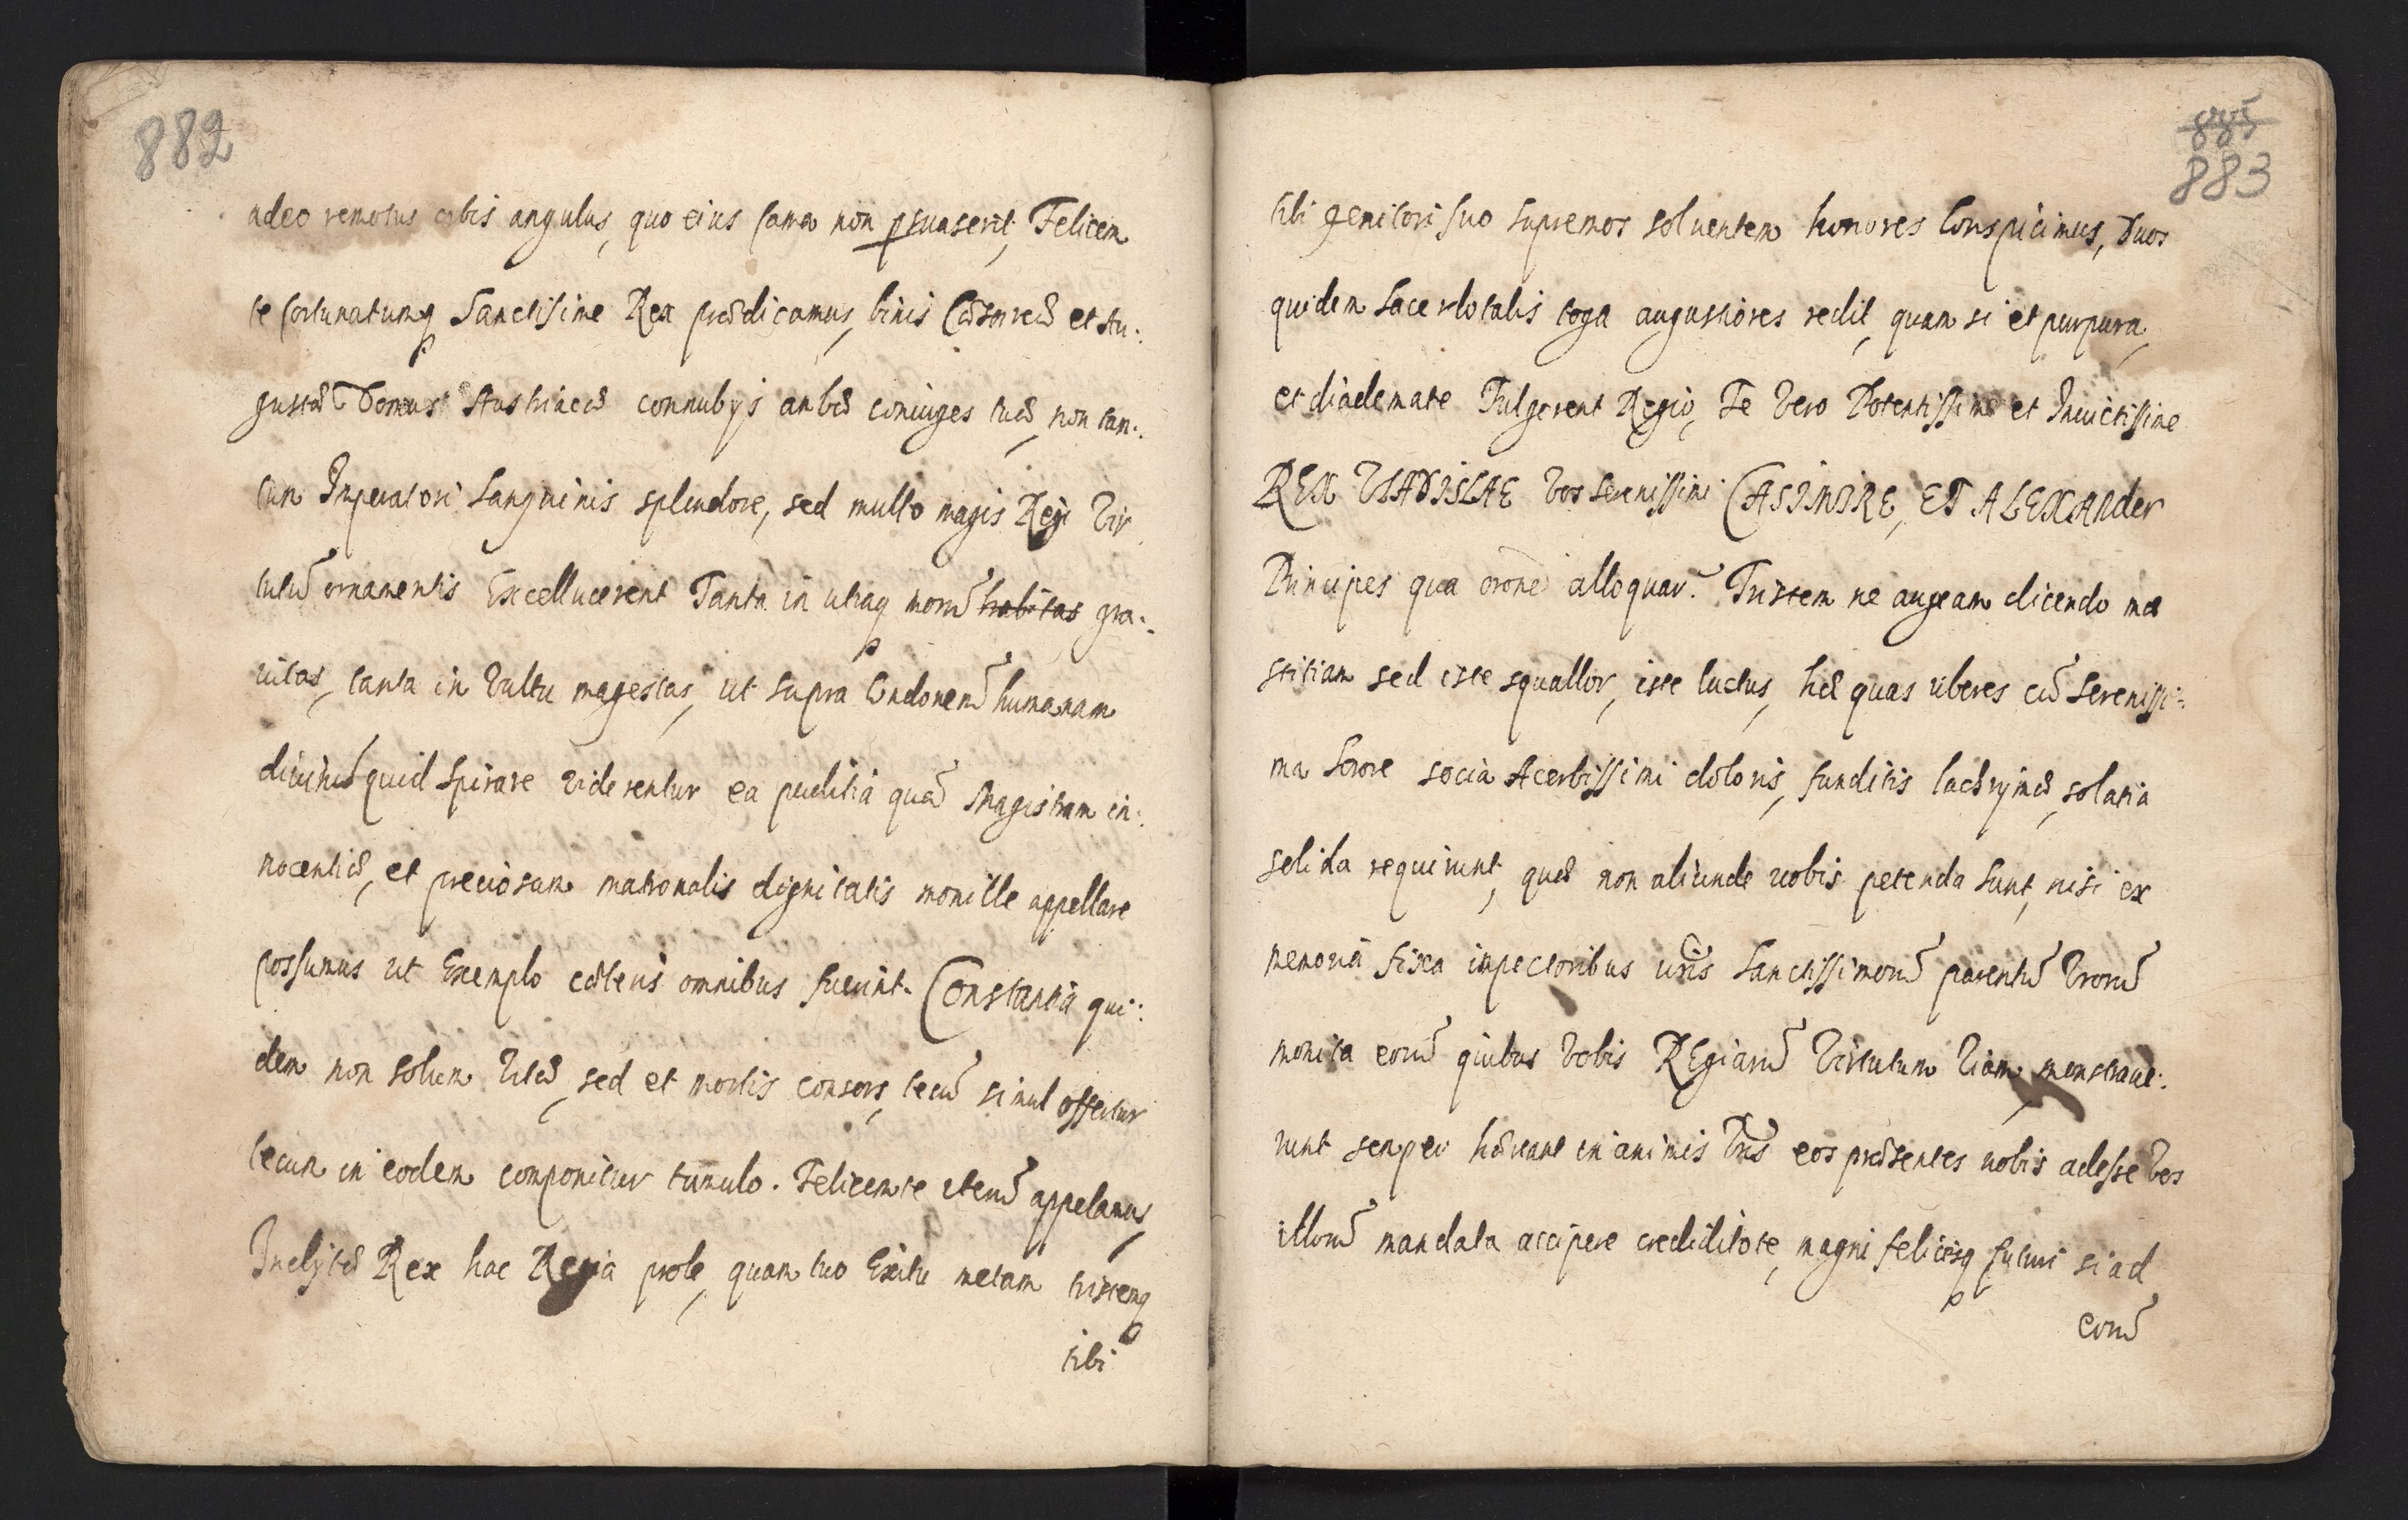 882
adeo remotus orbis angulus, quo eius fama non pruaserit, Felicem
te fortunatumq Sanctisime Rex prædicamus, binis Cæsareæ et Au:
gustæ Domus Austriacæ connubijs ambæ coniuges tuæ, non tan:
tum Imperatori Sanguinis splendore, sed multo magis Regi Vir
tutũ ornamentis Excellucerent Tanta in utraq morũ habitas gra:
uitas, tanta in Vultu magestas, ut supra Condonem̃ humanam
diuinũ quid Spirare Viderentur ea puditia quã Magistram in:
nocentiæ, et preciosum matronalis dignitatis monille appellare
possumus ut Exemplo cæteris omnibus fuerint. Constantia qui:
dem non solum Vitæ, sed et mortis consors, tecũ simul offertur
tecum in eodem componitur tumulo. Felicem te itenũ appelamus,
Inclytæ Rex hac Regia prole, quam tuo Exitu metam tristemq
tibi
885
883
tibi genitori suo supremos soluentem honores Conspicimus, Duos
quidem Sacerdotalis toga augustiores redit, quam si et purpura,
et diademate Fulgerent Regio, Te Vero Potentissime et Inuictissime
REX VLADISLAE Vos Serenissimi CASIMIRE, ET ALEXANder
Principes qua orone alloquar? Tristem ne augeam dicendo mæ
stitiam sed iste squallor, iste luctus, hæ quas uberes cũ Serenissi:
ma Sorore socia Acerbissimi doloris, funditis lachrymæ, solatia
solida requirunt, quæ non aliunde uobis petenda Sunt, nisi ex
memoria fixa inpectoribus uris Sanctissimorũ parentũ Vrorũ
monita eorũ quibus Vobis REgiarũ Virtutum Viam, monstraue:
runt semper hæreant in animis Vris eos præsentes uobis adesse Vos
illorũ mandata accipere credidítote, magni felicesq futuri si ad
eorũ